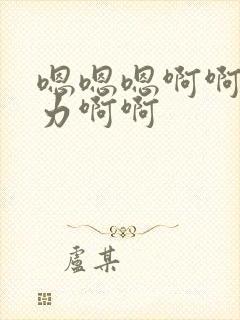 嗯嗯嗯啊啊
力啊啊
盧某